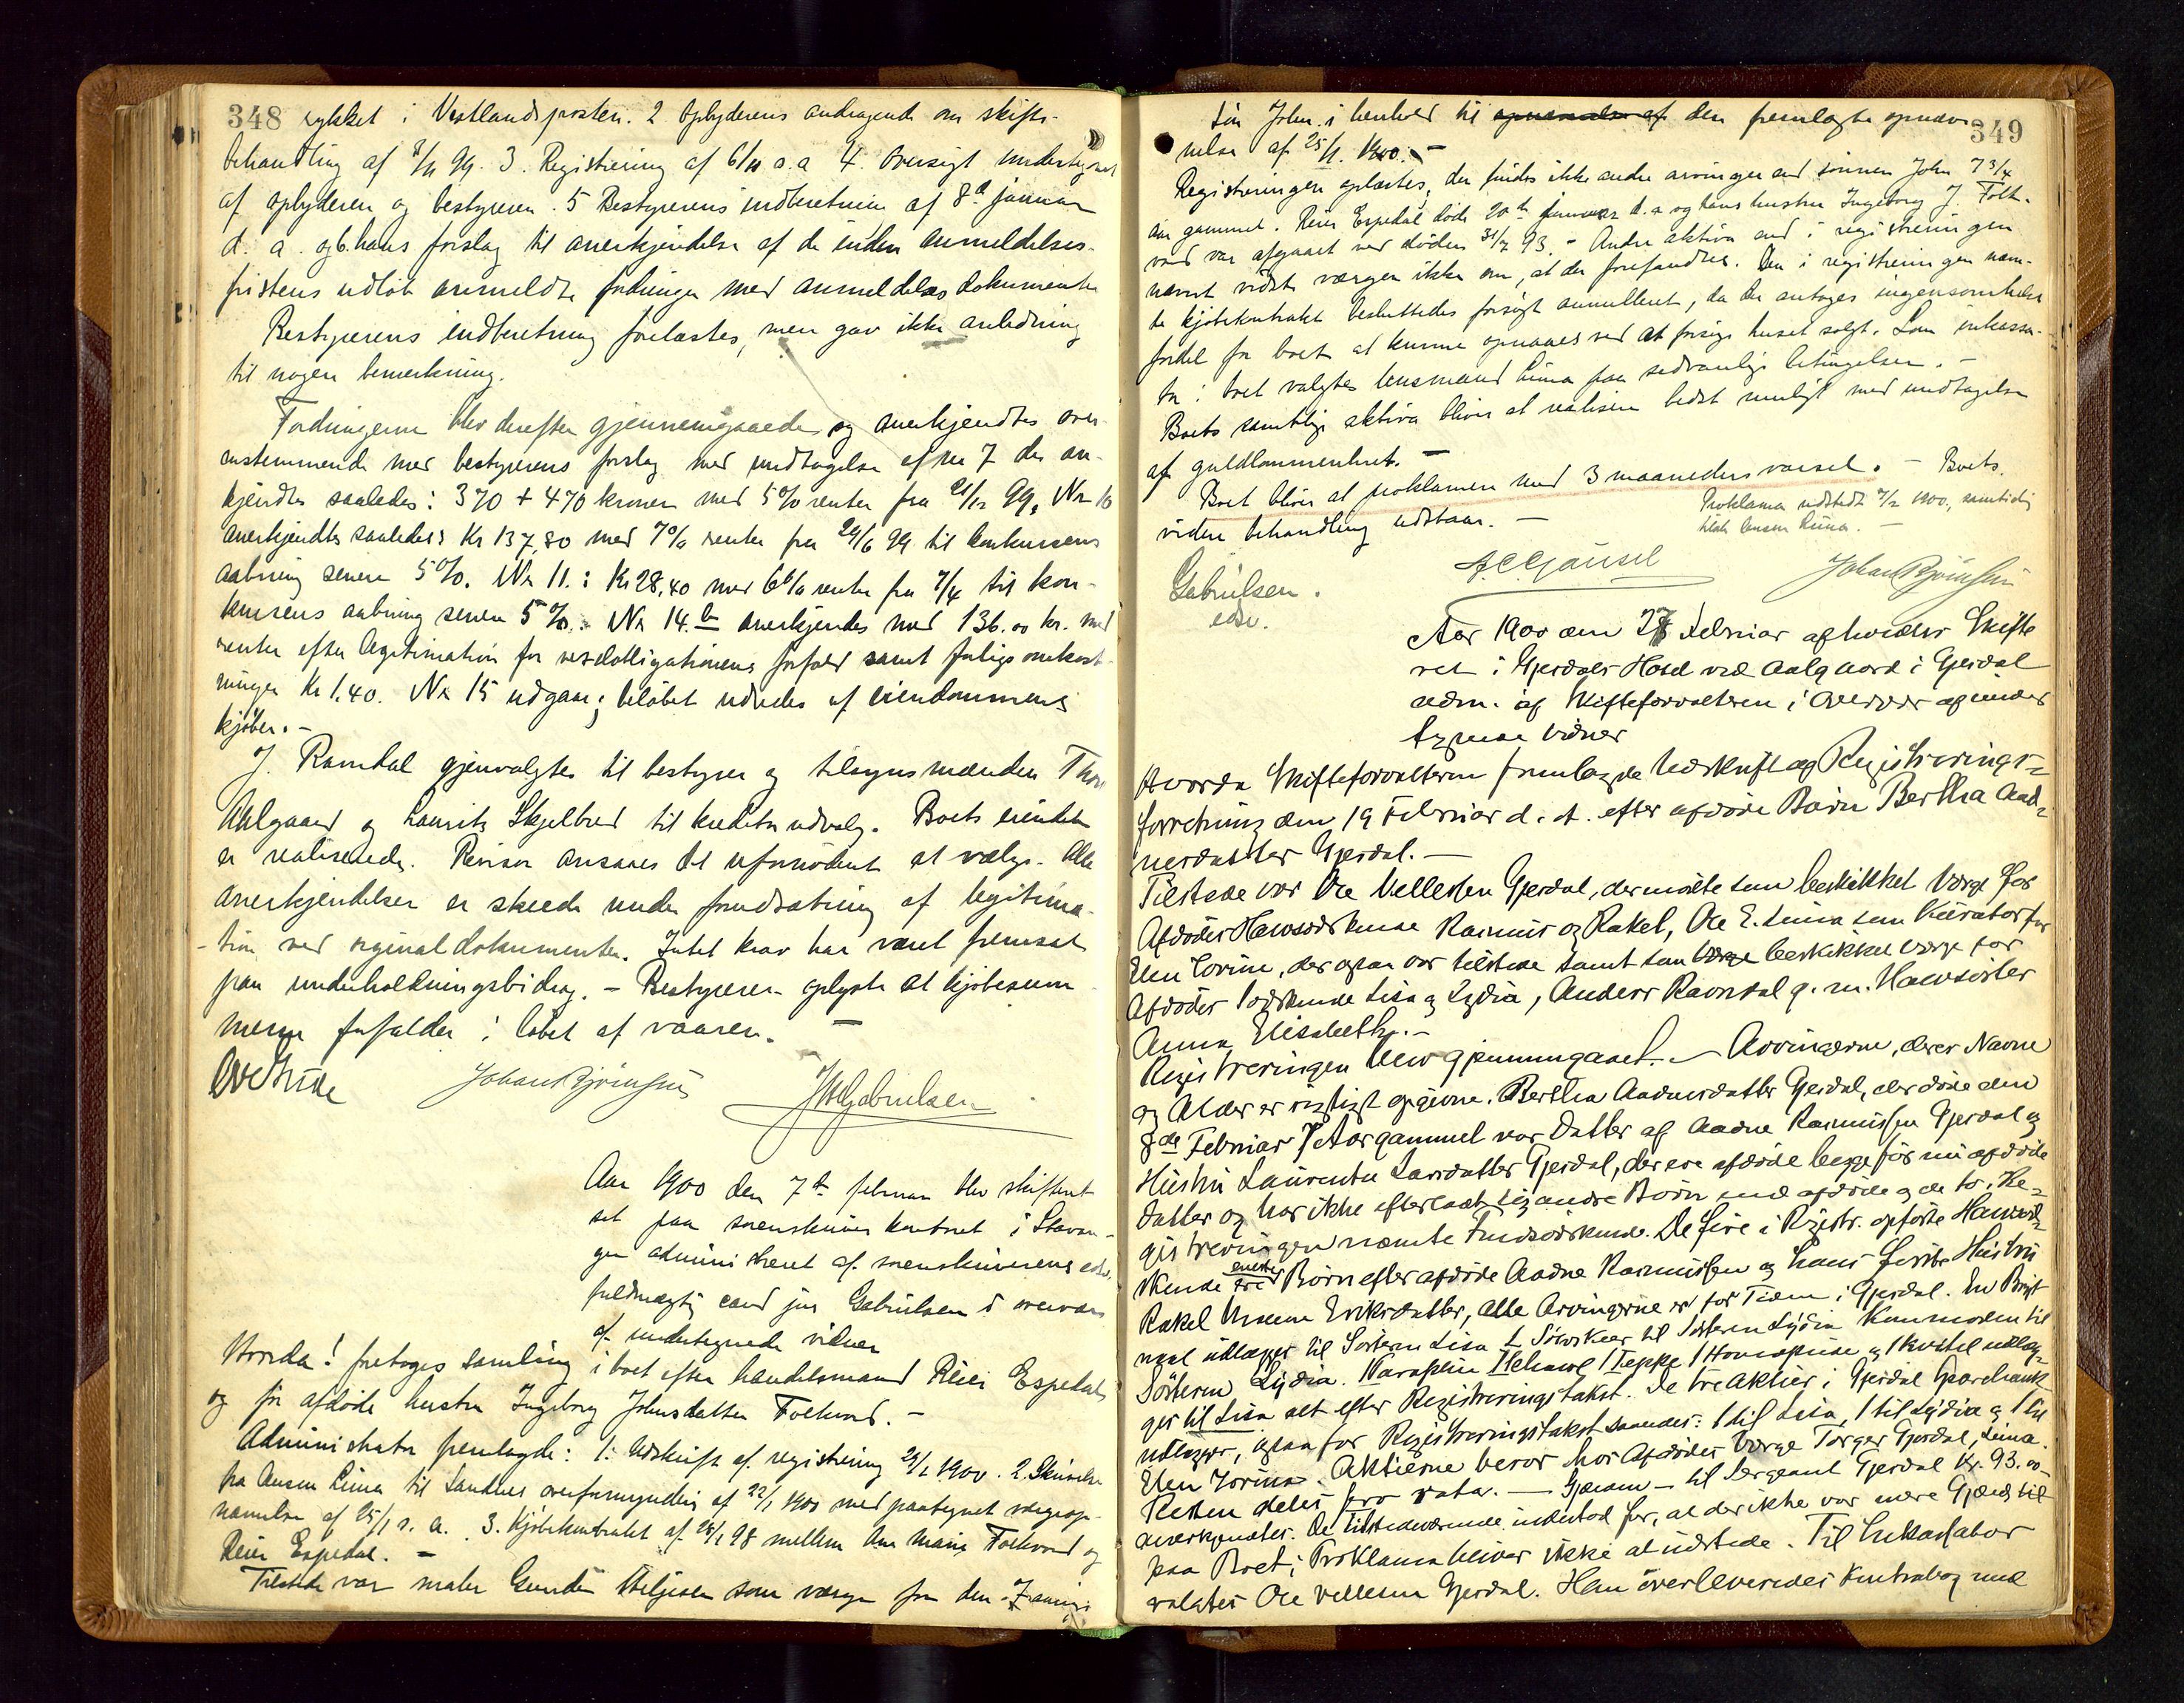 348
rykket i Vestlandsposten. 2 Opbyderens andragende om skifte-
behandling af 8/11 99. 3. Registrering af 6/11 s.a 4. Oversigt undertegnet
af opbyderen og bestyreren. 5 Bestyrerens indberetning af 8de januar
d. a. og 6. hans forslag til anerkjendelse af de inden anmeldelses-
fristens udløb anmeldte fordringer med anmeldelsesdokumenter
Bestyrerens indberetning forelæstes, men gav ikke anledning
til nogen bemerkning.
Fordringerne blev derefter gjennemgaaede og anerkjendtes over-
ensstemmende med bestyrerens forslag med undtagelse af No 7 der an-
kjendtes saaledes: 370 + 470 kroner med 5% renter fra 21/12 99, No 10
anerkjendtes saaledes: Kr 137,80 med 7% renter fra 29/6 99 til konkursens
aabning senere 5%. No 11.: Kr 28,40 med 6% renter fra 7/4 til kon-
kursens aabning senere 5%. No 14. b anerkjendes med 136.00 kr. med
renter efter legitimation for vexelobligationens forfald samt forligsomkost-
ninger Kr 1.40. No 15 udgaar; beløbet udredes af eiendommens
kjøber. -
J. Ravndal gjenvalgtes til bestyrer og tilsynsmænden Thore
Aalgaard og Laurits Skjelbred til kreditorudvalg. Boets eiendele
er realiserede. Revisor ansaaes det ufornødent at vælge. Alle
anerkjendelser er skeede under forudsætning af legitima-
-tion ved orginaldokumenter. Intet krav har været fremsat
paa underholdningsbidrag. - Bestyreren oplyste at kjøbesum-
mene forfalder i løbet af vaaren. -
Johan Bjørnsen JMGabrielsen
Aar 1900 den 7de februar blev skifteret
sat paa sorenskriverkontoret i Stavan-
ger administreret af sorenskriverens edsv.
fuldmægtig cand jur Gabrielsen i overvær
af undertegnede vidner
Hvorda! foretoges samling i boet efter handelsmand Reier Espedal
og før afdøde hustru Ingeborg Johnsdatter Foltvord. -
Administrator fremlagde: 1: Udskrift af registrering 29/1 1900. 2. Skrivelse
fra lensm Lima til Sandnes overformynderi af 22/1 1900 med paategnet værgeop-
nævnelse af 25/1 s. a. 3. Kjøbekontrakt af 25/1 98 mellem Ane Marie Foltvord og
Reier Espedal. -
Tilstede var maler Gunder Kiljesen som værge for den 7 aarige
349
søn John i henhold til opnævnelse af den fremlagte opnæv-
nelse af 25/1. 1900. -
Registreringen oplæstes, der findes ikke andre arvinger end sønnen John 7 3/4
aar gammel. Reier Espedal døde 20de januar d. a og hans hustru Ingeborg J. Folt-
vord var afgaaet ved døden 31/7 93. - Andre aktiva end i registreringen
nævnt vidste værgen ikke om, at der forefandtes. Den i registreringen nævn-
te kjøbekontrakt besluttedes forsøgt annulleret, da der antages ingensomhelst
fordel for boet at kunne opnaaes ved at forsøge huset solgt. Som inkassa-
tor i boet valgtes lensmand Lima paa sedvanlige betingelser. -
Boets samtlige aktiva bliver at realisere bedst muligt med undtagelse
af guldlommeuhret. -
Boet bliver at proklamere med 3 maaneders varsel. - Boets
videre behandling udstaar. -
Proklama udstedt 7/2 1900, samtidig
tilsk lensm Lima. -
Gabrielsen.
edsv.
Johan Bjørnsen
Aar 1900 den 27 Februar afholdtes Skifte
ret i Gjesdals Hotel ved Aalgaard i Gjesdal
adm. af Skifteforvalteren i Overvær af under
tegnede Vidner
Hvorda Skifteforvalteren fremlagde Udskrift og Registrerings-
forretning den 19 Februar d. A. efter afdøde Barn Bertha Aad-
nesdatter Gjesdal. -
Tilstede var Ole Vellesen Gjesdal, der mødte som beskikket Værge for
Afdødes Halvsødskende Rasmus og Rakel, Ole E. Lima som Kurator for
Elen Torine, der ogsaa var tilstede samt som Værge beskikket Værge for
Afdødes Sødskende Lisa og Lydia, Anders Ravndal g. m. Halvsøster
Anna Elisabeth. -
Registreringen blev gjennemgaaet. - Arvingerne, deres Navne
og Alder er rigtigt opgivne. Bertha Aadnesdatter Gjesdal, der døde den
8de Februar 7 Aar gammel var Datter af Aadne Rasmussen Gjesdal og
Hustru Laurentse Larsdatter Gjesdal, der ere afdøde begge før nu afdøde
Datter og har ikke efterladt sig andre Børn end afdøde og de to i Re-
gistreringen nævnte Fuldsødskende. De fire i Registr. opførte Halvsød-
skende ere eneste Børn efter afdøde Aadne Rasmussen og hans første Hustru
Rakel Eriksdatter, alle Arvingerne er for Tiden i Gjesdal. En Bryst
naal udlægges til Søsteren Lisa 1 Sølvskeer til Søsteren Lydia Kommoden til
Søsteren Lydia. 1 Schawl 1 Teppe 1 Hovedpude og 1 Kvitel udlæg-
ges til Lisa alt efter Registreringstakst. De tre Aktier i Gjesdal Sparebank
udlægges, ogsaa for Registreringstakst saaledes: 1 til Lisa, 1 til Lydia og 1 til
Elen Torine. Aktierne beror hos Afdødes Værge Torger Gjesdal, Lima.
Resten deles pro rata. - Gjælden - til Sergeant Gjesdal Kr. 93.00 -
anerkjendtes. De Tilstedeværende indestod for, at der ikke var mere Gjæld til-
paa Boet; Proklama bliver ikke at udstede. Til Inkassator
valgtes Ole Vellesen Gjesdal. Han overleveredes Kontrabog med